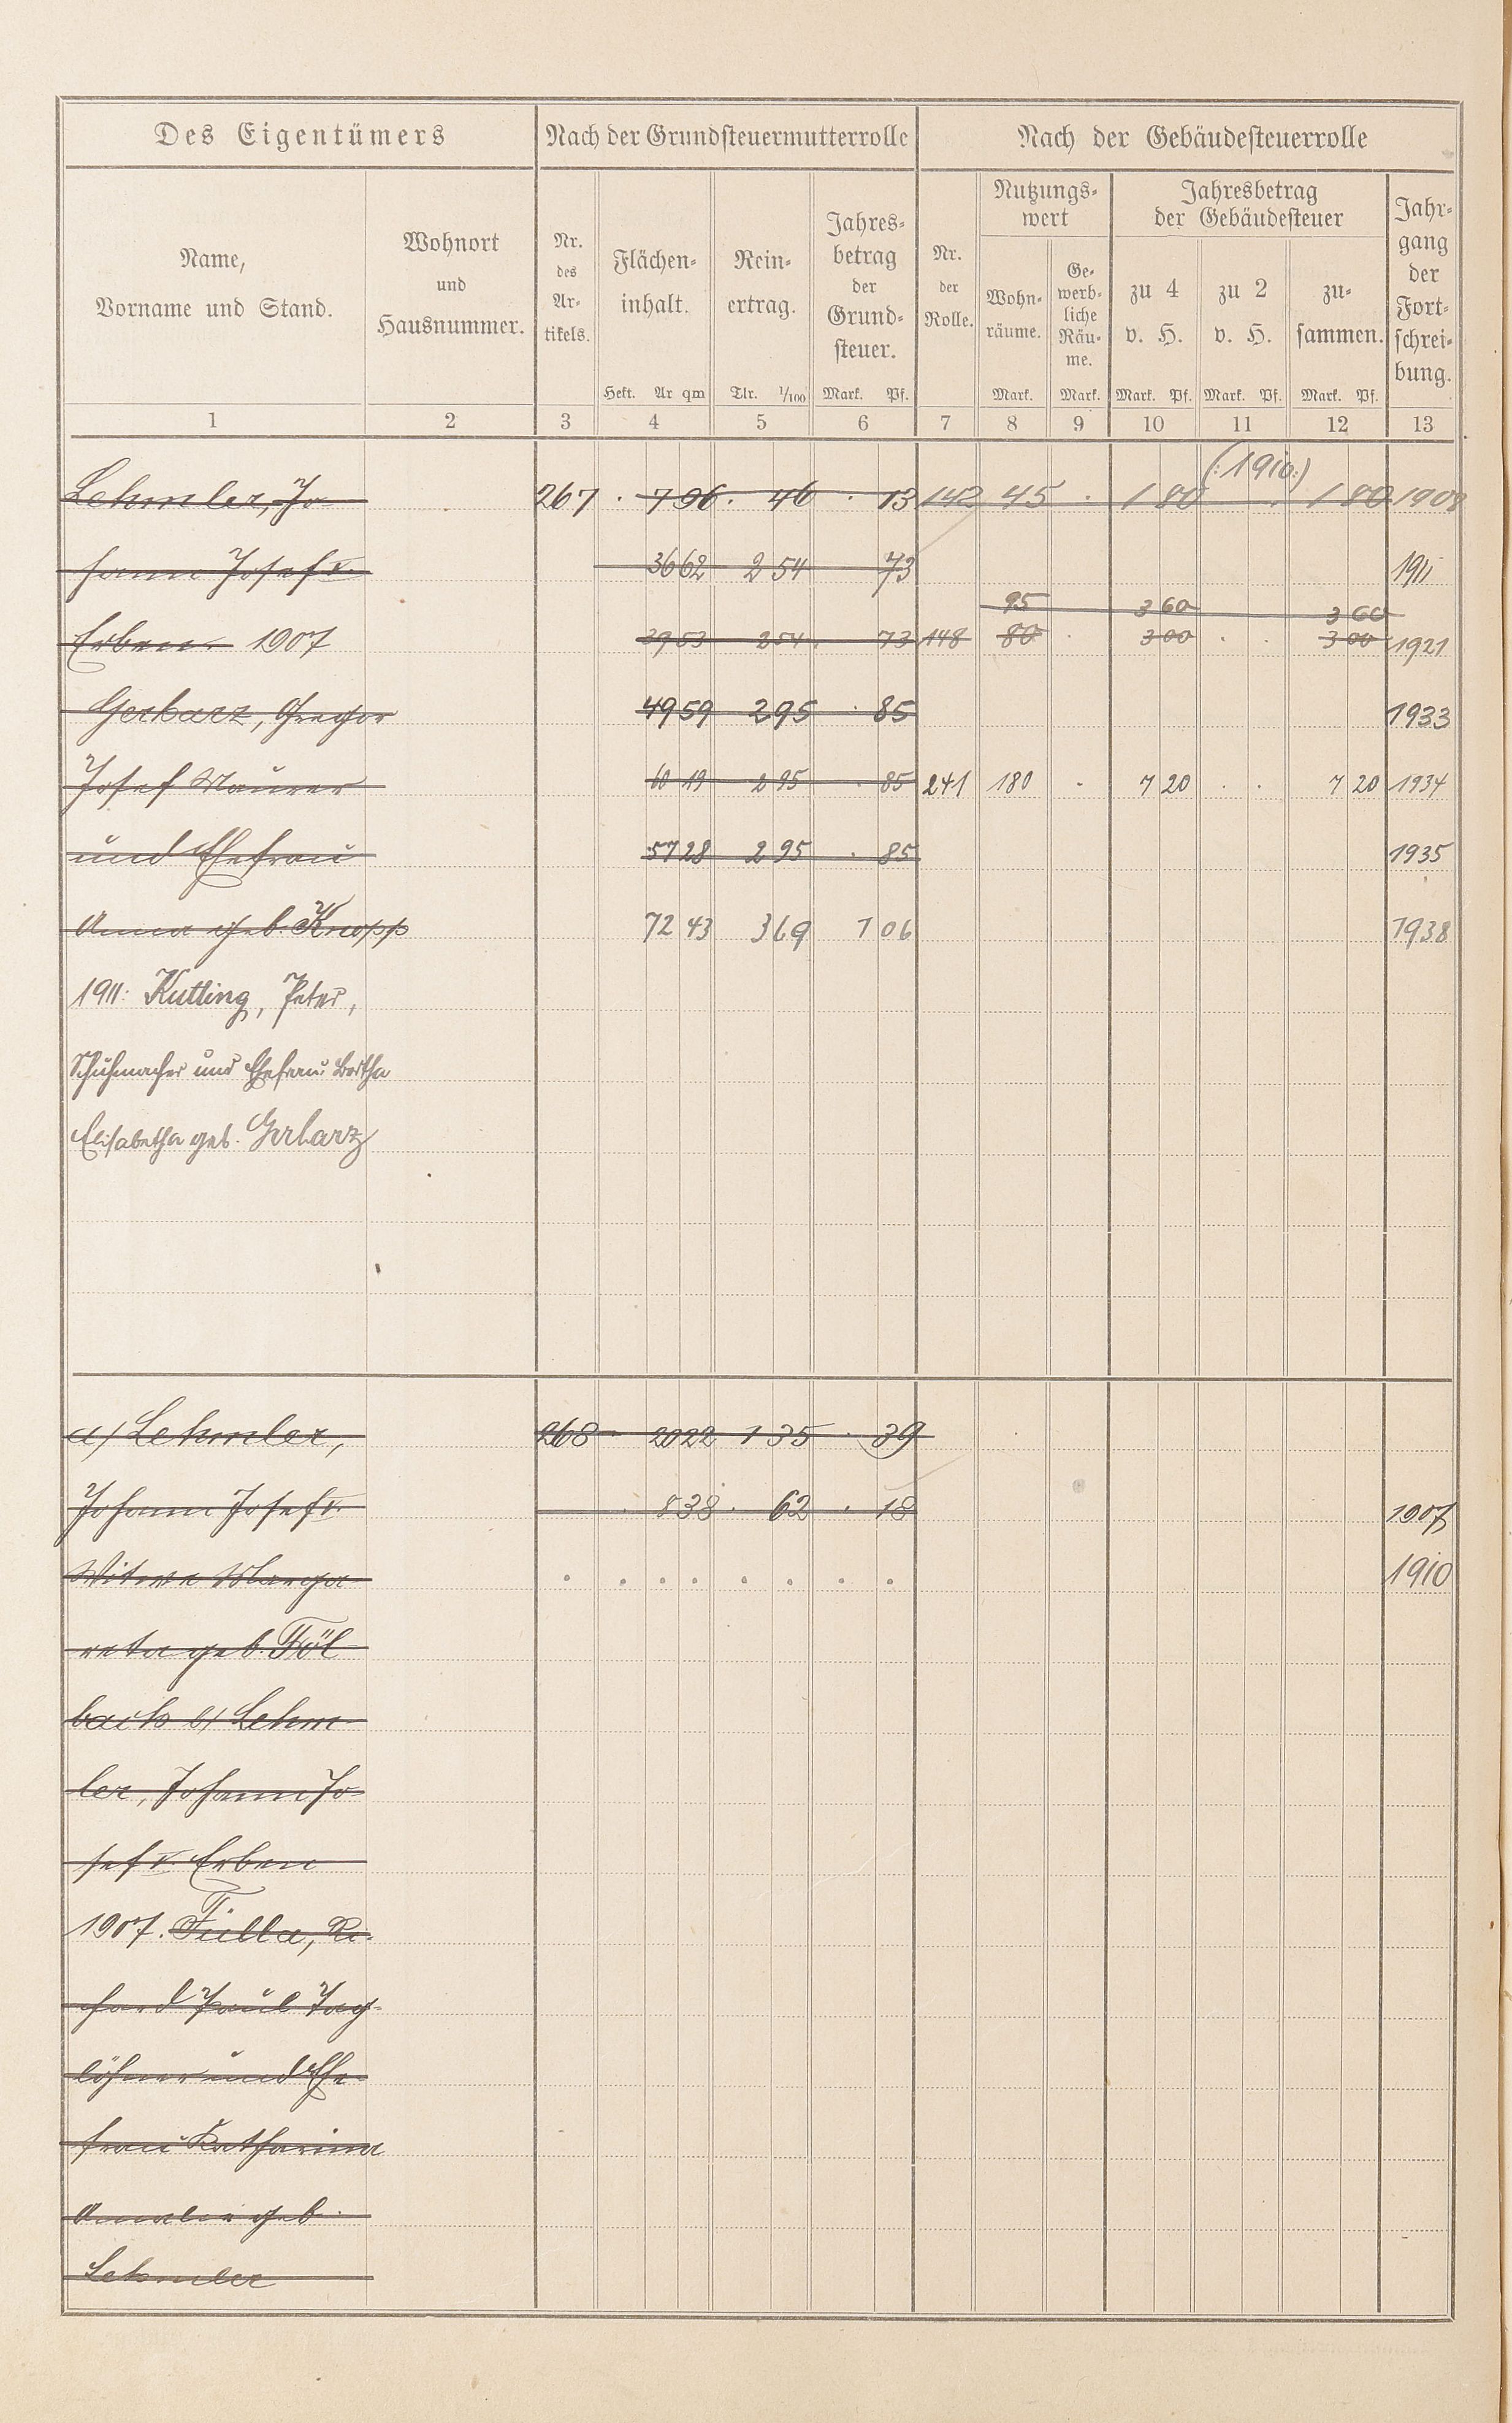 Des Eigentümers
Nach der Grundsteuermutterrolle
Nach der Gebäudesteuerrolle
Name,
Vorname und Stand.
Wohnort
und
Hausnummer.
Nr.
des
Ar-
tikels.
Flächen-
inhalt.
Hekt. Ar qm
Rein-
ertrag.
Tlr. 1/100
Jahres-
betrag
der
Grund-
steuer.
Mark. Pf.
Nr.
der
Rolle.
Nutzungs-
wert
Wohn-
räume.
Mark.
Ge-
werb-
liche
Räu-
me.
Mark.
Jahresbetrag
der Gebäudesteuer
zu 4
v. H.
Mark. Pf.
zu 2
v. H.
Mark. Pf.
zu-
sammen.
Mark. Pf.
Jahr-
gang
der
Fort-
schrei-
bung.
1 2 3 4 5 6 7 8 9 10 11 12 13
(:1910:)
Lehmler, Jo- 267 . 7 96 . 46 . 13 142 45 . 1 80 . 1 80 1908
hann Josef V. 36 62 2 54 73 1911
95 3 60 3 60
Erben 1907 39 53 2 54 . 73 148 80 . 3 00 . . 3 00 1921
Gerharz, Gregor 49 59 2 95 . 85 1933
Josef Maurer 60 19 2 95 . 85 241 180 . 7 20 . . 7 20 1934
und Ehefrau 57 28 2 95 . 85 1935
Anna geb. Knopp 72 43 3 69 1 06 1938
1911: Kutling, Peter,
Schuhmacher und Ehefrau Bertha
Elisabetha geb. Gerharz
a) Lehmler, 268 - 20 22 1 35 . 39
Johann Josef V. . 8 38 . 62 . 18 1907
Witwe Marga- . . . . . . . . 1910
reta geb. Föl
bach b) Lehm-
ler, Johann Jo-
sef V. Erben
1907. Fulla, Ri-
chard Paul Tag-
löhner und Ehe-
frau Katharina
Amalie geb.
Lehmler